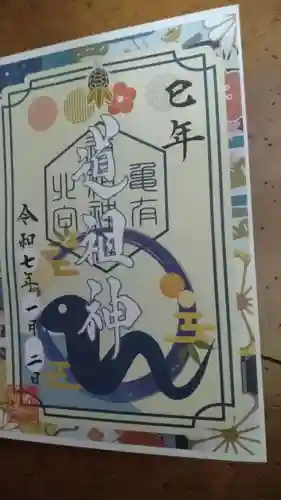 巳年
亀有
道祖神
北向
令和七年一月二日